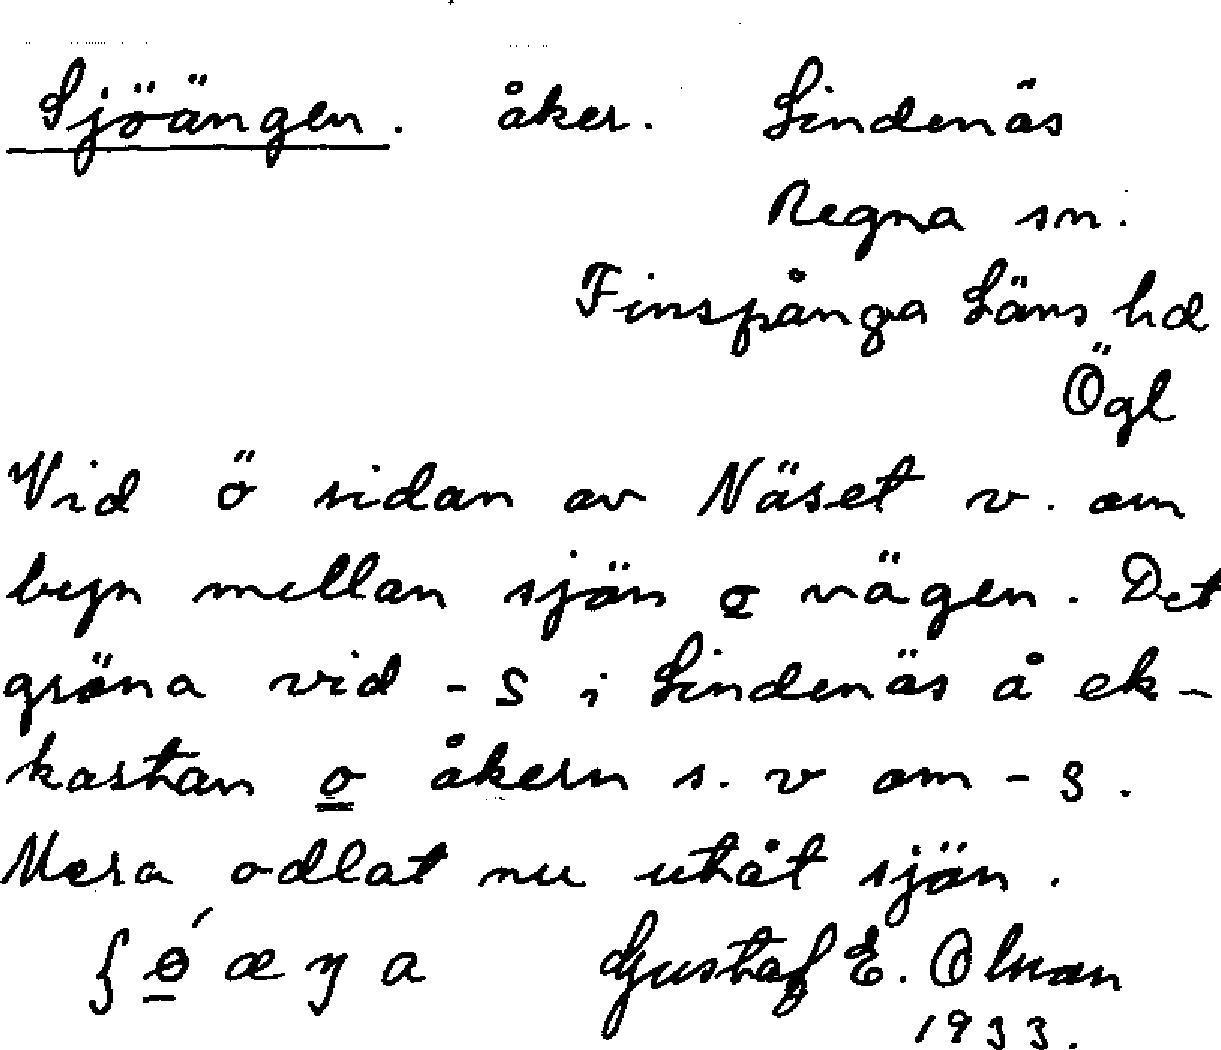 Sjöängen. åker. Lindenäs
Regna sn.
Finspånga Läns hd
Ögl
Vid ö sidan av Näset v. om
byn mellan sjön o vägen. Det
gröna vid - S i Lindenäs å ek-
kastan o åkern s. v om - S.
Mera odlat nu utåt sjön.
ʃɵ́æŋa Gustaf E. Olsson
1933.